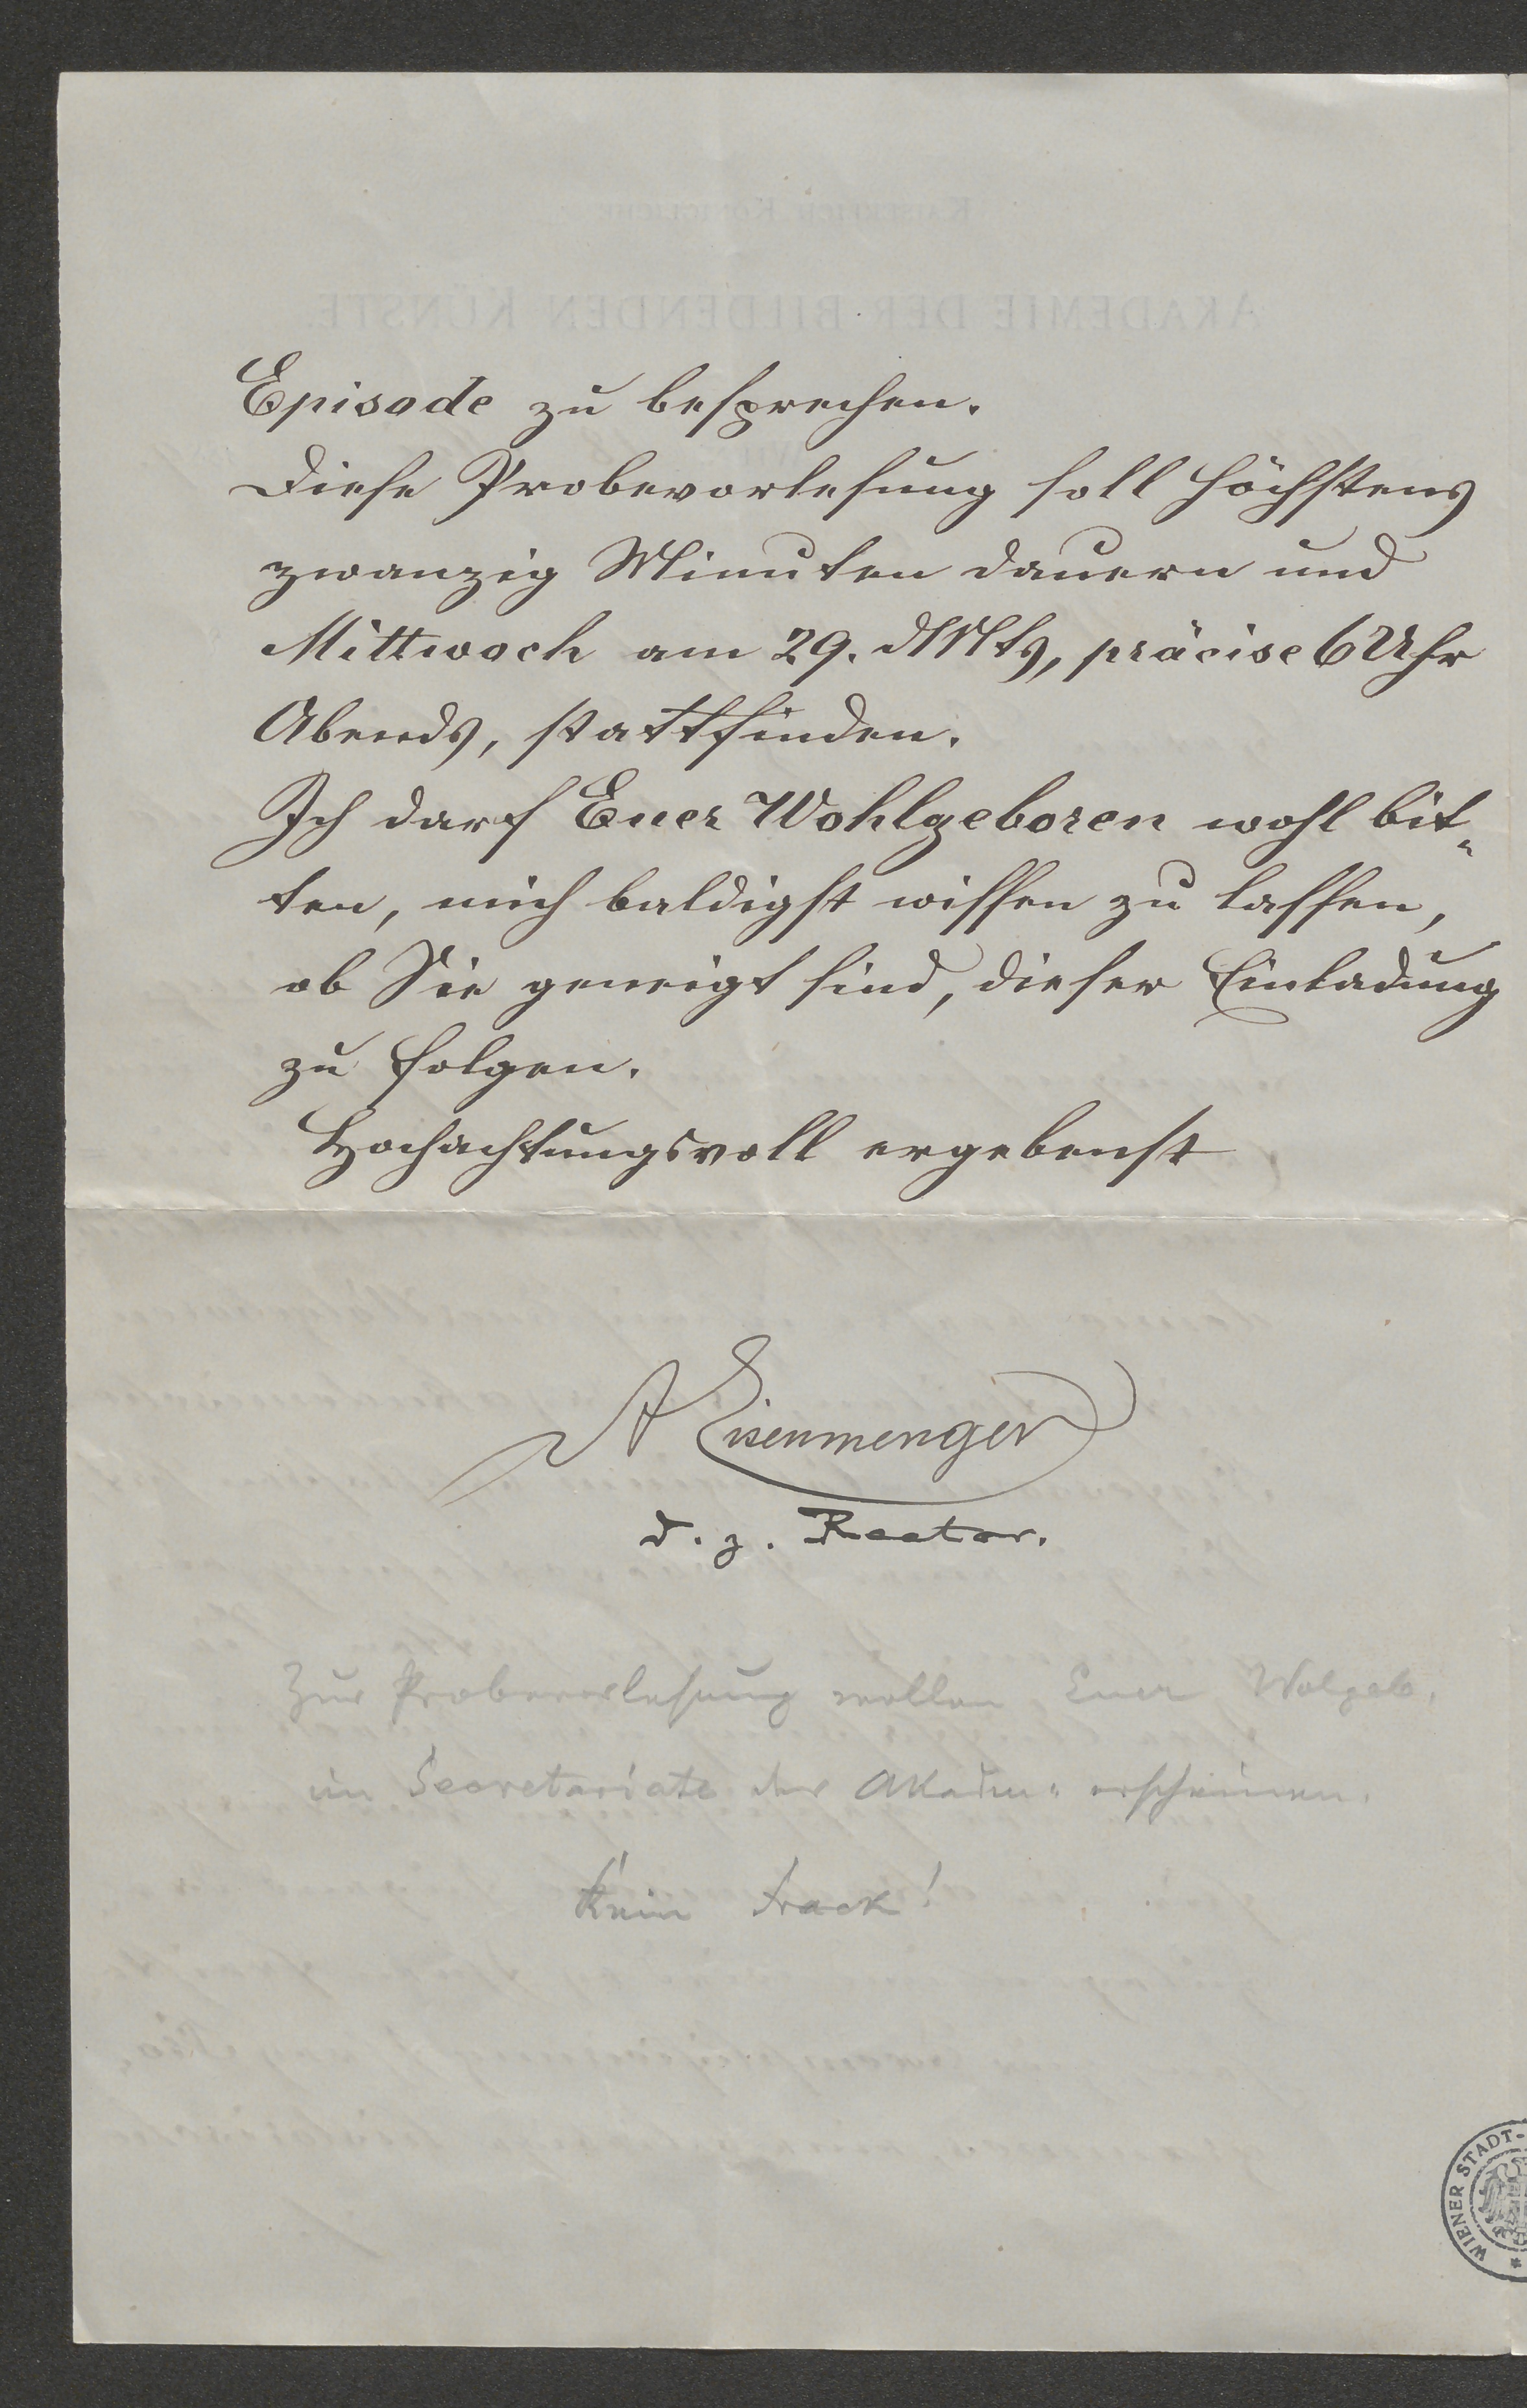 Episode zu besprechen.
Diese Probevorlesung soll höchstens
zwanzig Minuten dauern und
Mittwoch am 29. d Mts, präcise 6 Uhr
Abends, stattfinden.
Ich darf Euer Wohlgeboren wohl bit„
ten, mich baldigst wissen zu lassen,
ob Sie geneigt sind, dieser Einladung
zu folgen.
Hochachtungsvoll ergebenst
A Eisenmenger
d. z. Rector.
Zur Probevorlesung wollen Euer Wolgeb.
im Secretariate der Akadem. erscheinen.
Kein Frack!
WIENER STADT-